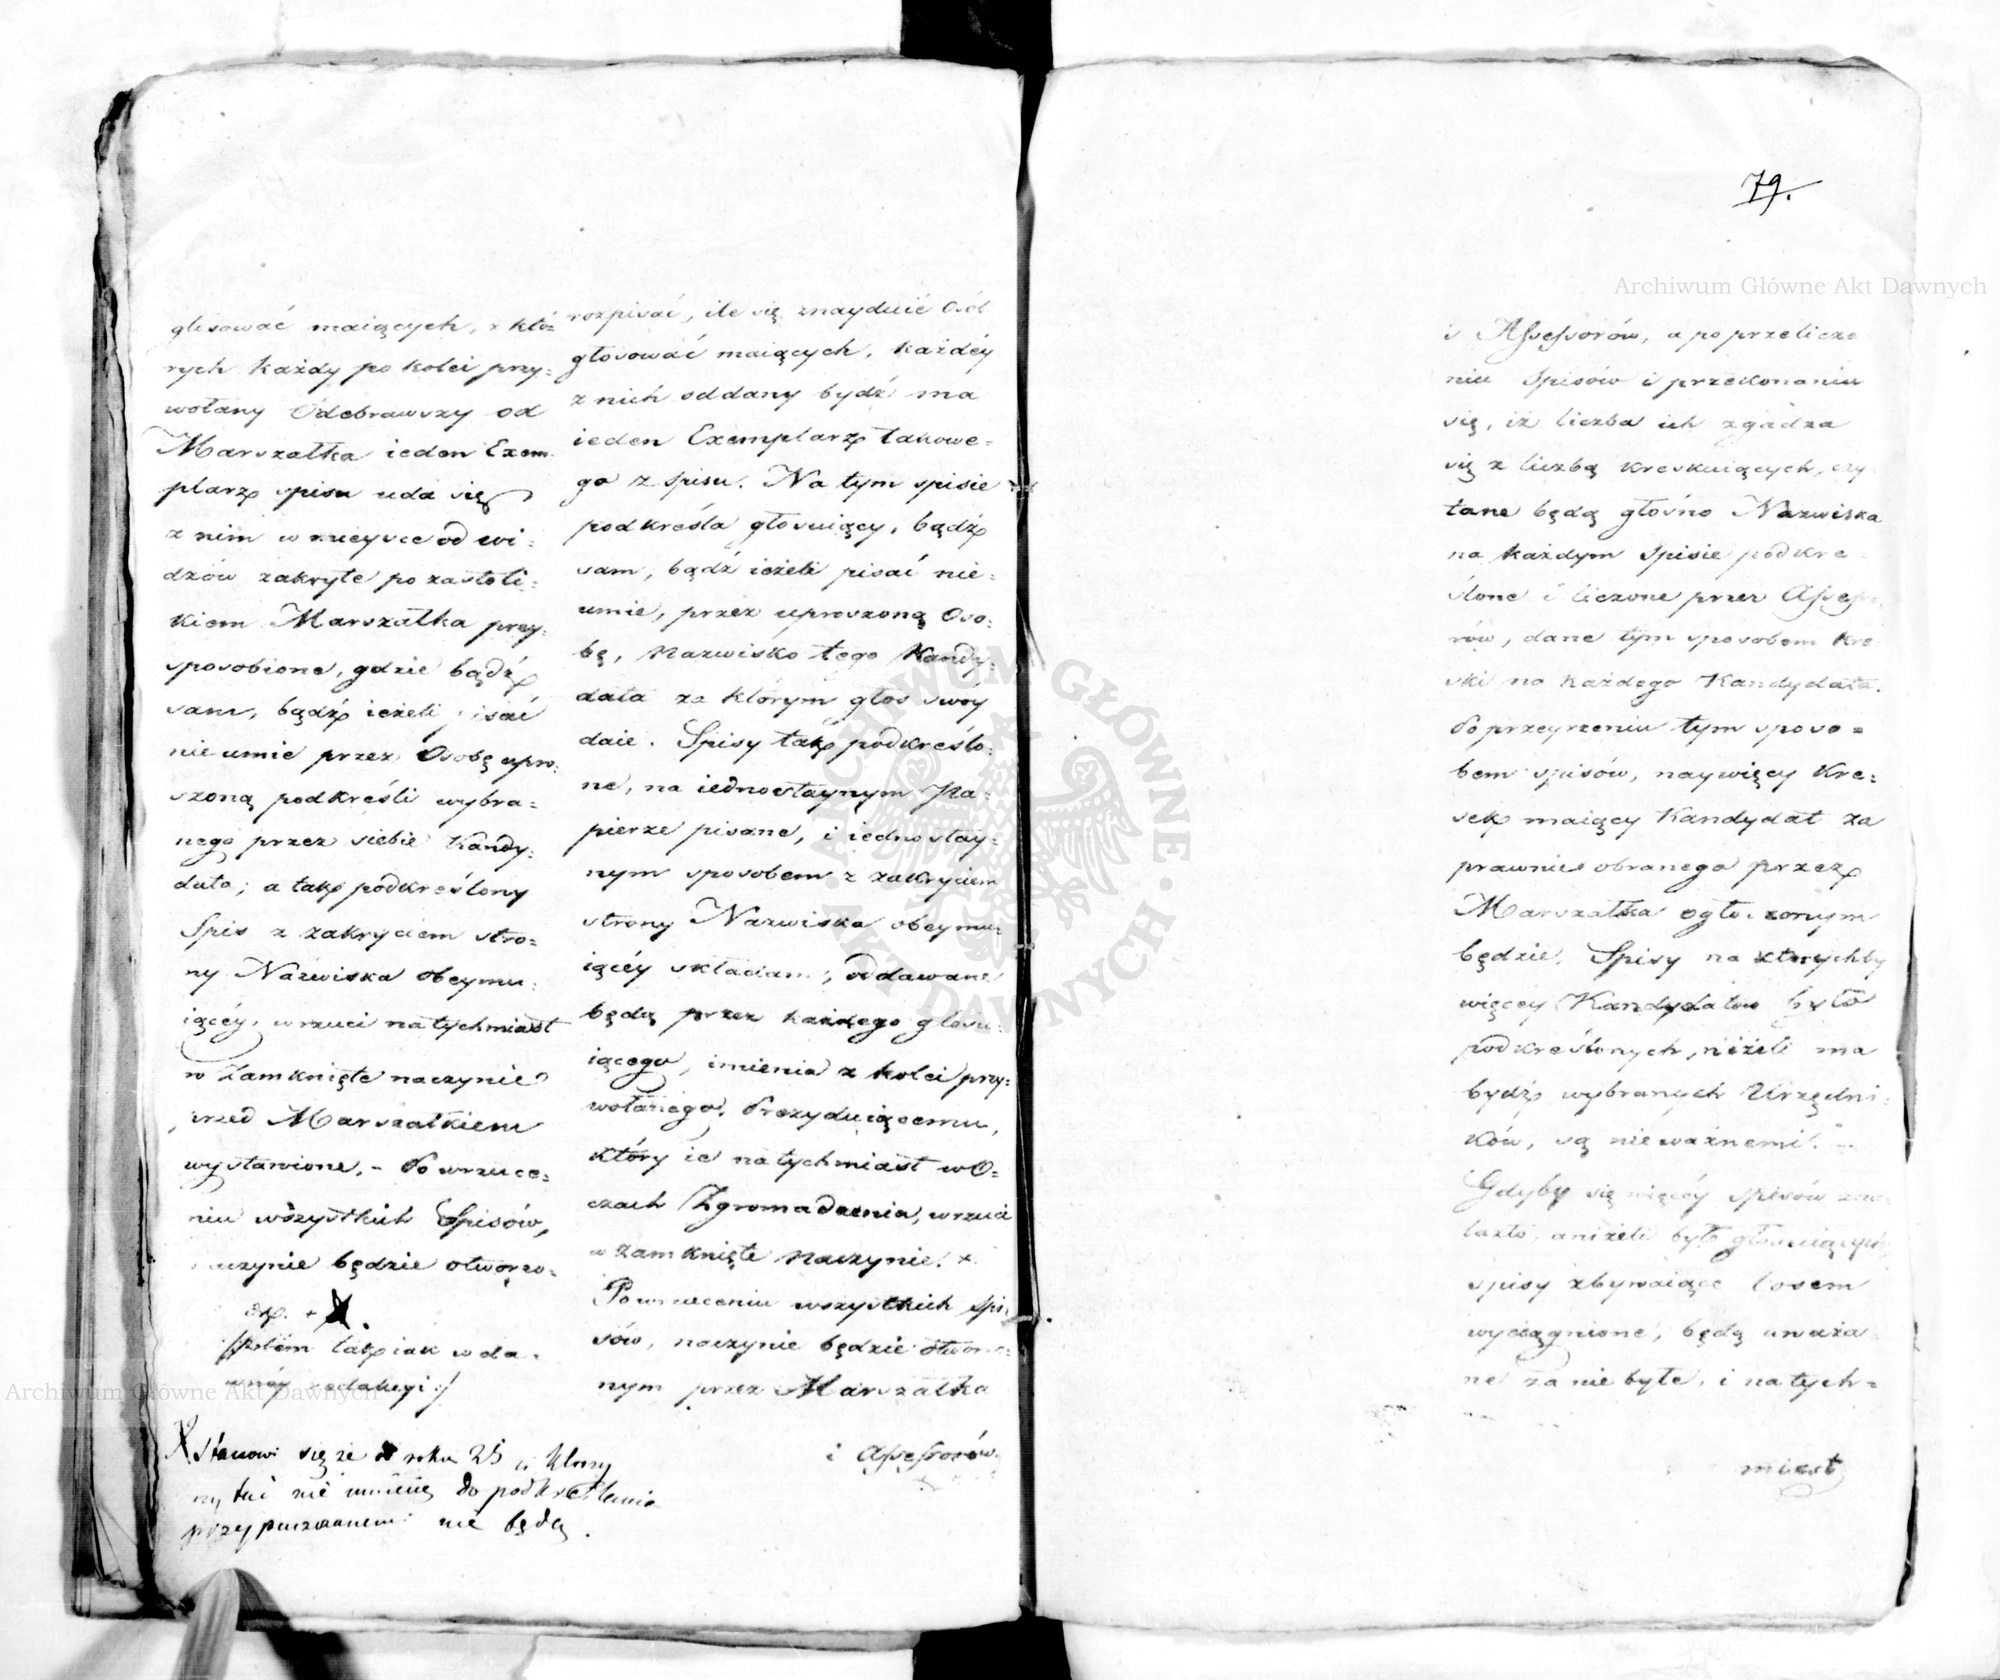 glosować maiących, z któ=
rych każdy po kolei przy=
wołany Odebrawszy od
Marszałka ieden Exem
plarz spisu uda się
z nim w mieysce od wi=
dzów zakryte po za stoli=
kiem Marszałka przy=
sposobione, gdzie bądź
sam, bądź ieżeli pisać
nie umie przez Osobę upro=
szoną podkreśli wybra=
nego przez siebie Kandy=
data; a tak podkreślony
Spis z zakryciem stro=
ny Nazwiska obeymu=
iącéy, wrzuci natychmiast
w Zamknięte naczynie
przed Marszałkiem
wystawione. – Po wrzuce=
niu wszystkich Spisów,
naczynie będzie otworzo=
potém tak iak w da=
wnéy redakcyi :/
X Stanowi się że od roku 25 ci którzy
czytać nie umieią do podkreślania
przypuszczanemi nie będą.
rozpisać, ile się znayduie Osób
głosować maiących, każdéy
z nich oddany bydź ma
ieden Exemplarz takowe=
go z spisu. Na tym spisie
podkreśla głosuiący, bądź
sam, bądź ieżeli pisać nie=
umie, przez uproszoną Oso=
bę, Nazwisko tego Kandy=
data za którym głos swóy
daie. Spisy tak podkreślo=
ne, na iednostaynym Pa=
pierze pisane, i iednostay=
nym sposobem z zakryciem
strony Nazwiska obeymu=
iącéy składane, oddawane
będą przez każdego głosu=
iącego, imienia z kolei przy=
wołanego, Prezyduiącemu,
który ie natychmiast w O=
czach Zgromadzenia, wrzuci
w zamknięte Naczynie. +
Po wrzuceniu wszystkich Spi=
sów, naczynie będzie otworzo=
nym przez Marszałka
i Assessorów
79.
i Assessorów, a po przelicze
niu Spisów i przekonaniu
się, iż liczba ich zgadza
się z liczbą kreskuiących, czy=
tane będą głośno Nazwiska
na każdym Spisie podkre=
ślone i liczone przez Assess
rów, dane tym sposobem kre
ski na każdego Kandydata.
Po przeyrzeniu tym sposo=
bem spisów, naywięcy kre=
sek maiący Kandydat za
prawnie obranego przez
Marszałka ogłoszonym
będzie. Spisy na którychby
więcey Kandydatów było
podkreślonych, niżeli ma
bydź wybranych Urzędni=
ków, są nieważnemi. –
Gdyby się więcéy spisów zna=
lazło, aniżeli było głosuiących
spisy zbywaiące losem
wyciągnione, będą uważa=
ne za nie byłe, i natych=
miast
Archiwum Główne Akt Dawnych
Archiwum Główne Akt Dawnych
ARCHIWUM GŁÓWNE · AKT DAWNYCH ·